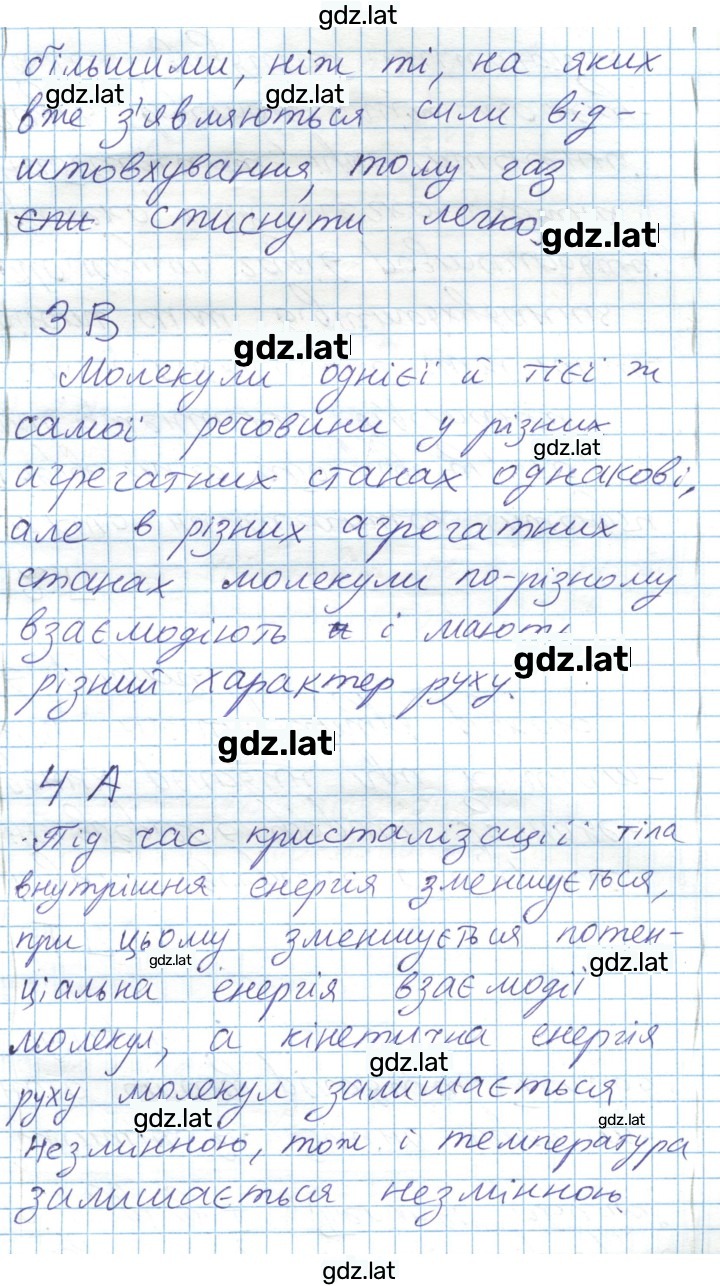 gdz.lat
більшими, ніж ті, на яких
gdz.lat gdz.lat
вже з'являються сили від-
штовхування, тому газ
спи стиснути легко.
gdz.lat
3 В
gdz.lat
Молекули однієї й тієї ж
самої речовини у різних
gdz.lat
агрегатних станах однакові,
але в різних агрегатних
станах молекули по-різному
взаємодіють і мають
gdz.lat
різний характер руху.
gdz.lat
4 А
Під час кристалізації тіла
внутрішня енергія зменшується,
при цьому зменшується потен-
gdz.lat gdz.lat
ціальна енергія взаємодії
молекул, а кінетична енергія
gdz.lat
руху молекул залишається
gdz.lat gdz.lat
незмінною, тож і температура
залишається незмінною.
gdz.lat